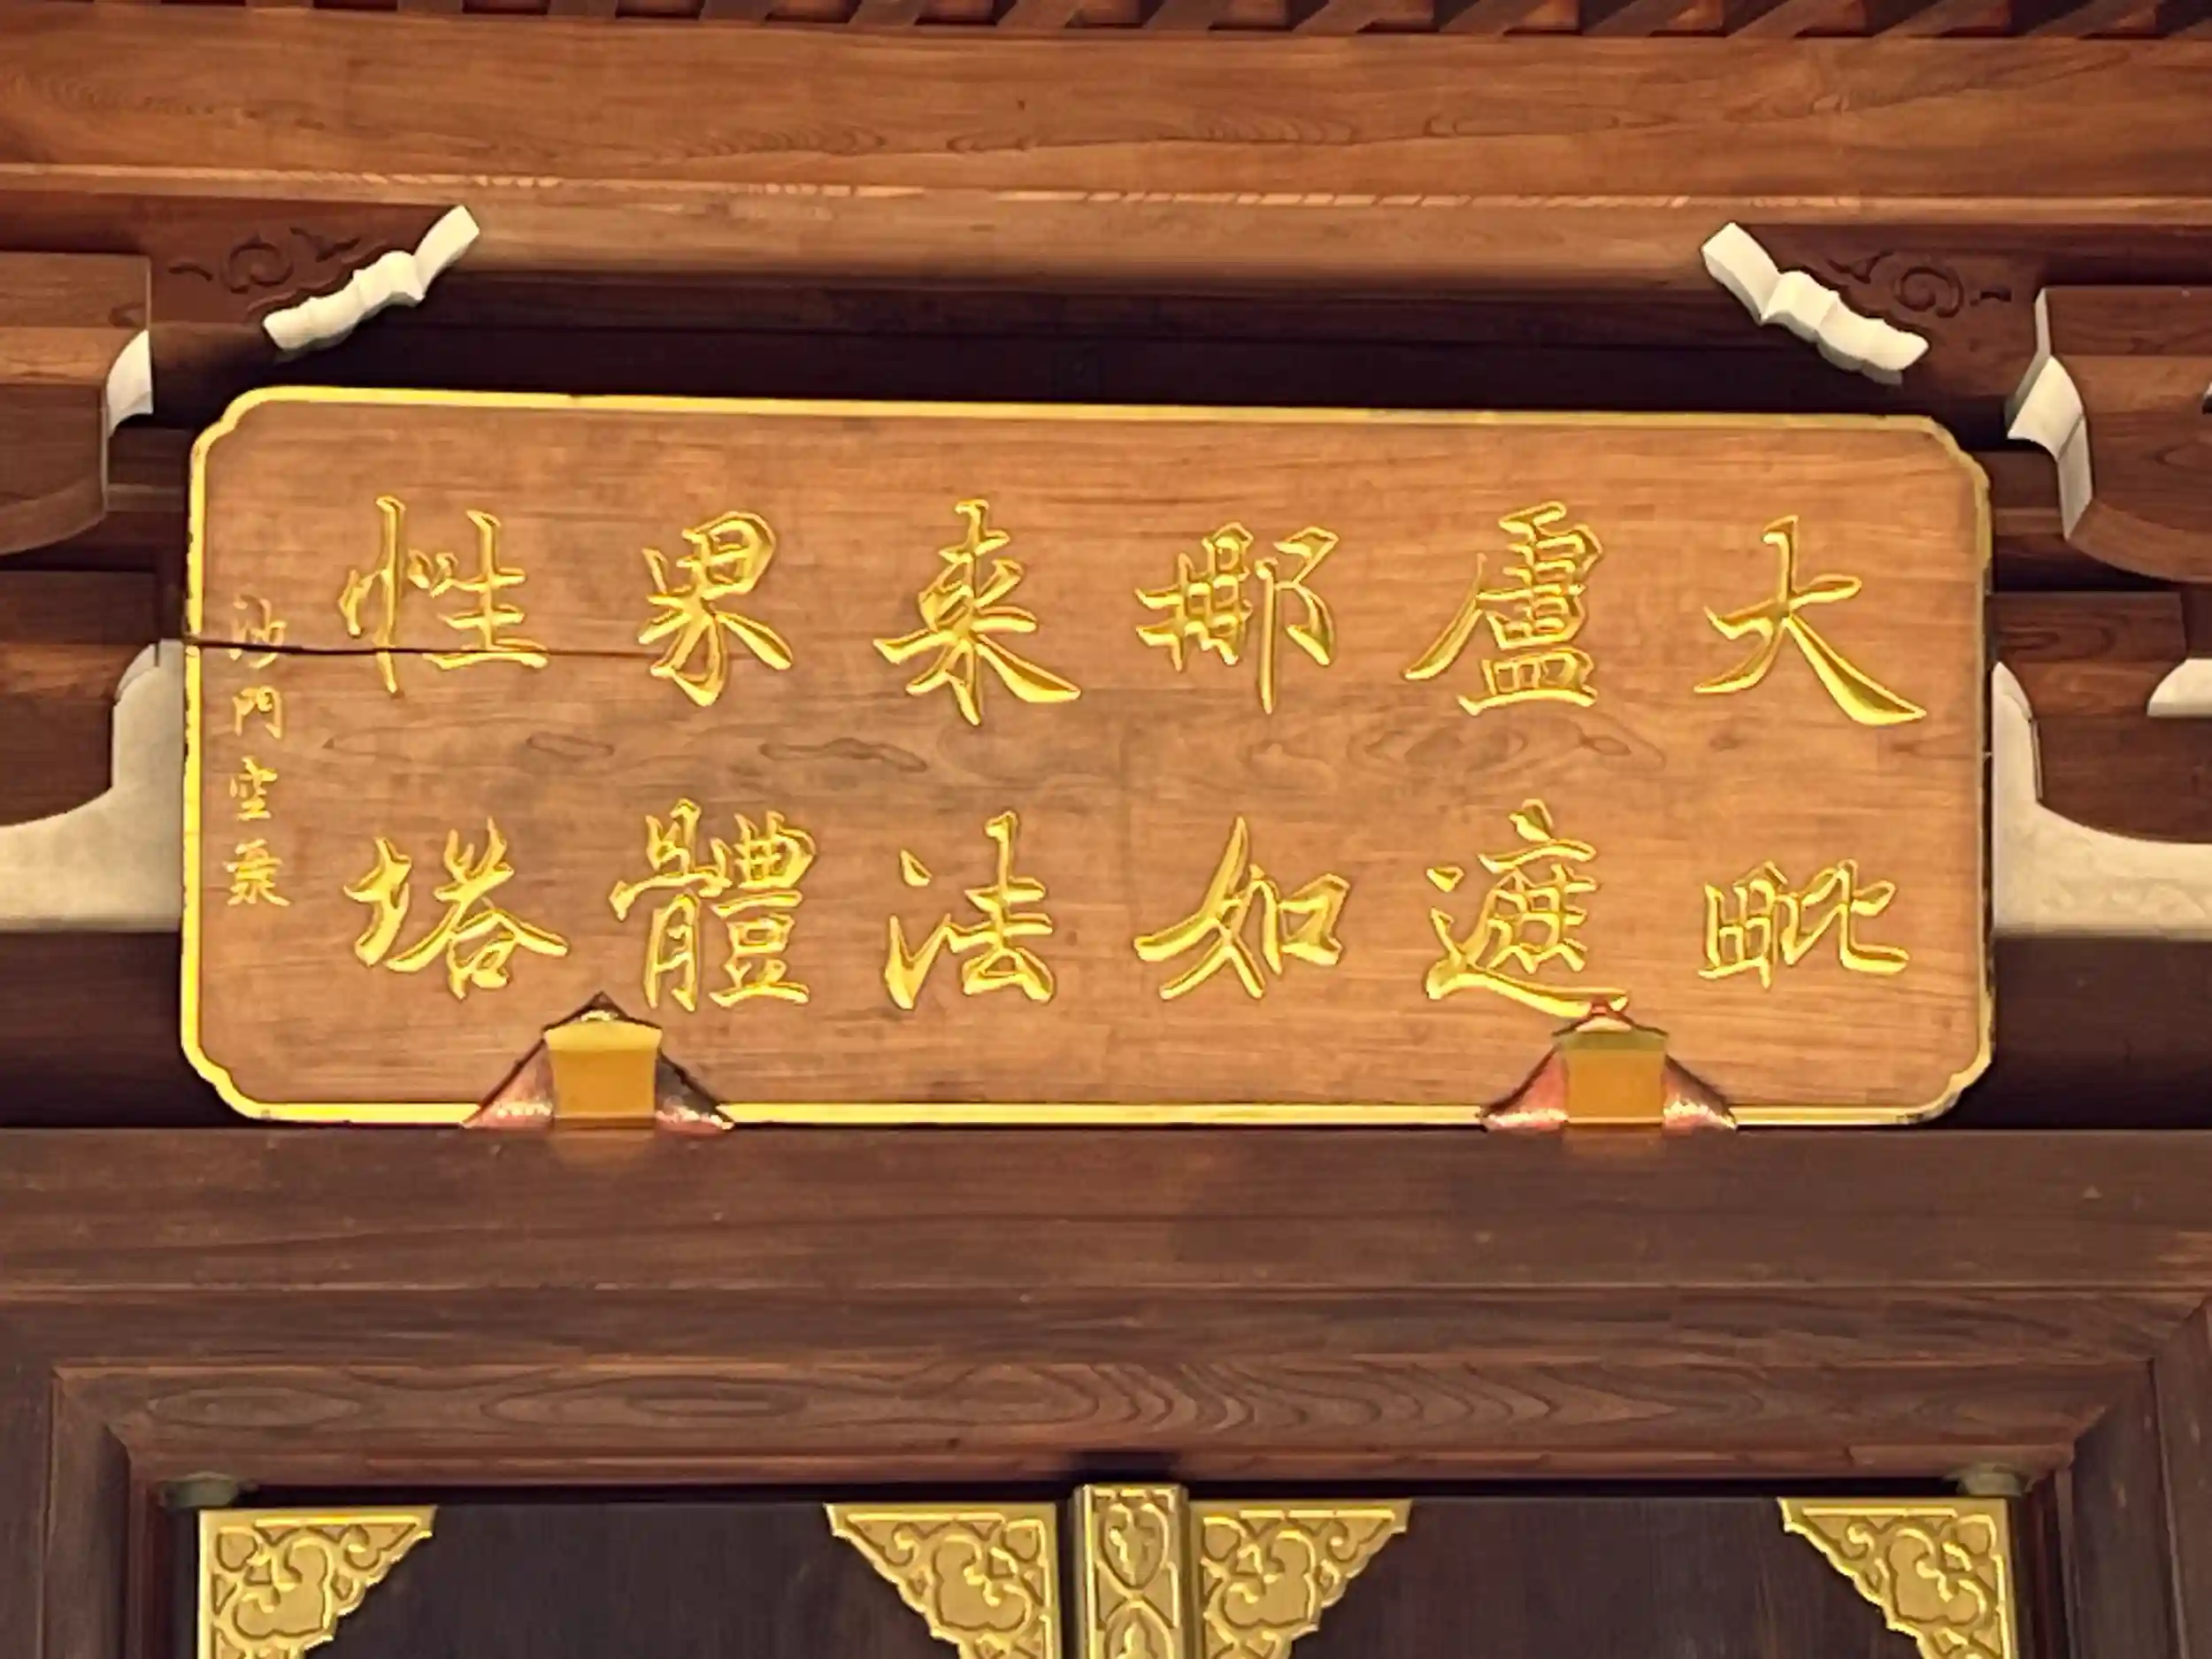 大毗
盧遮
那如
来法
界體
性塔
沙門空